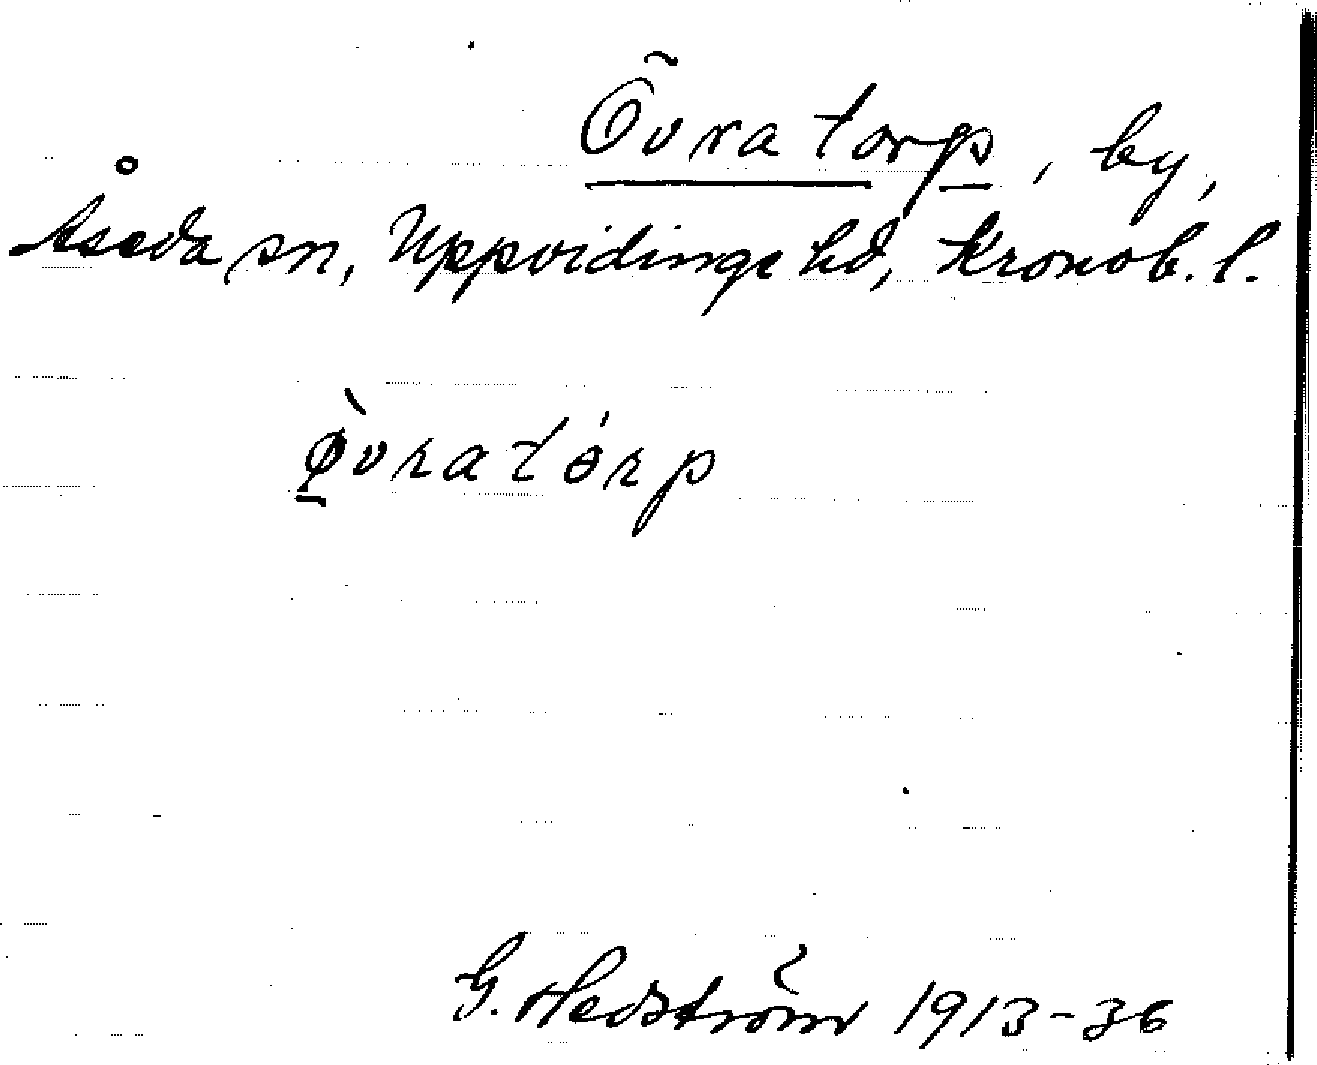 Övratorp, by,
Åseda sn, Uppvidinge hd, Kronob. l.
Ø̀vratórp
G. Hedström 1913-36